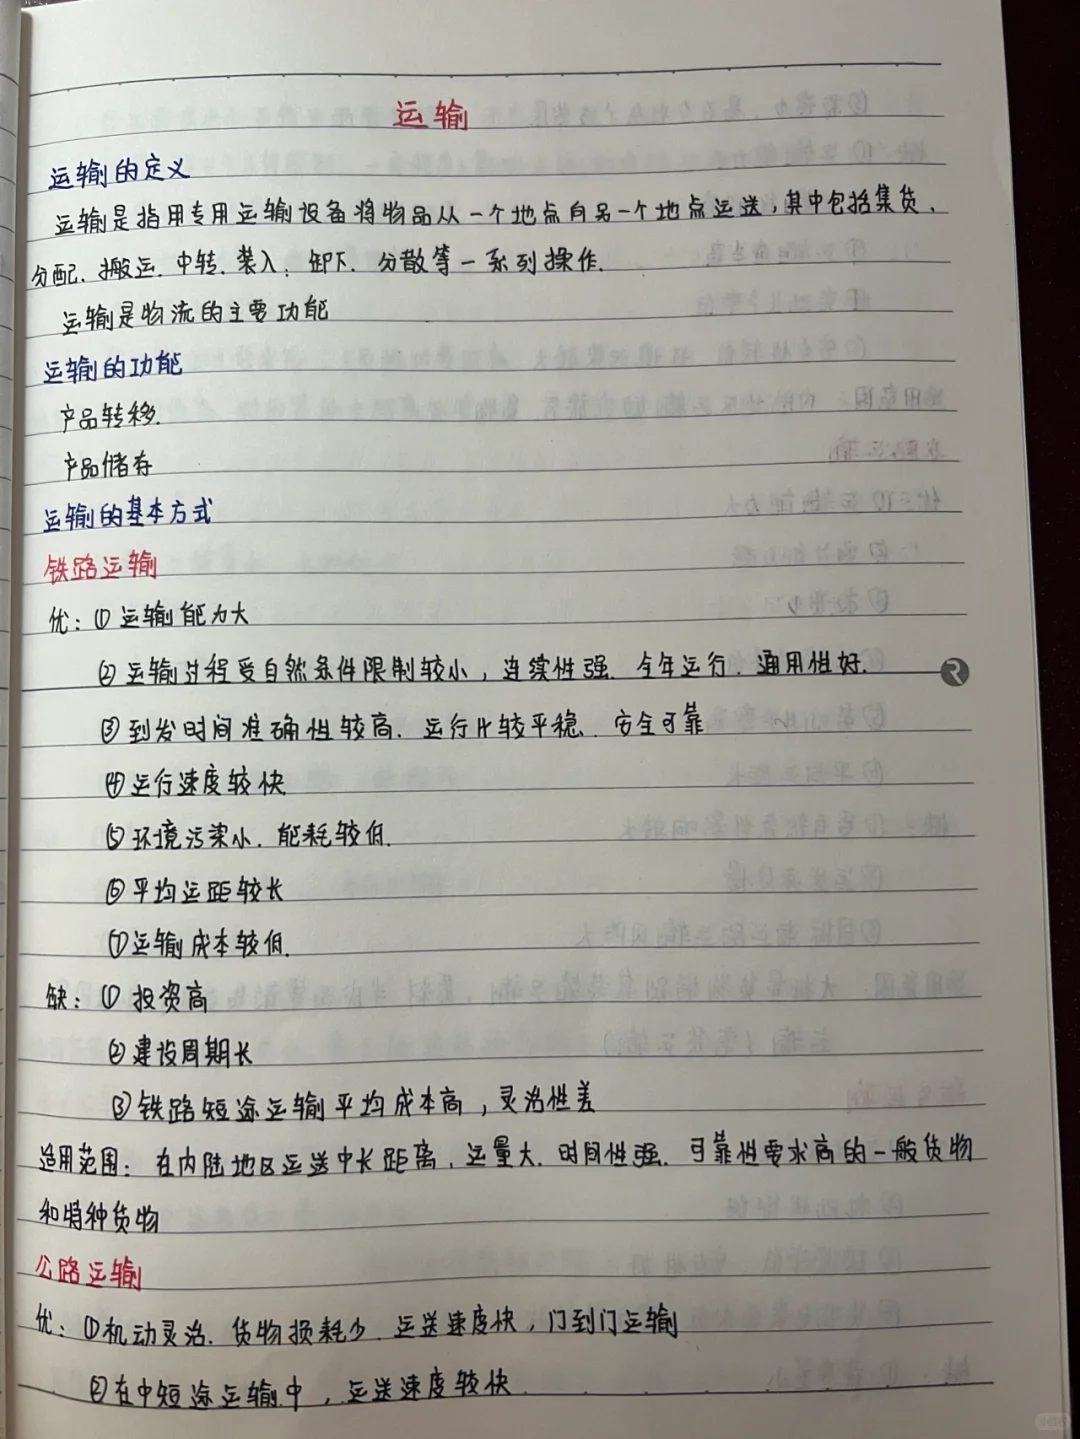 运输
运输的定义
运输是指用专用运输设备将物品从一个地点向另一个地点运送,其中包括集货、
分配、搬运、中转、装入、卸下、分散等一系列操作.
运输是物流的主要功能
运输的功能
产品转移.
产品储存
运输的基本方式
铁路运输
优:①运输能力大
②运输过程受自然条件限制较小,连续性强、全年运行、通用性好.
③到发时间准确性较高、运行比较平稳、安全可靠
④运行速度较快
⑤环境污染小、能耗较低.
⑥平均运距较长
⑦运输成本较低.
缺:①投资高
②建设周期长
③铁路短途运输平均成本高,灵活性差
适用范围:在内陆地区运送中长距离、运量大、时间性强、可靠性要求高的一般货物
和特种货物
公路运输
优:①机动灵活、货物损耗少、运送速度快,门到门运输
②在中短途运输中,运送速度较快